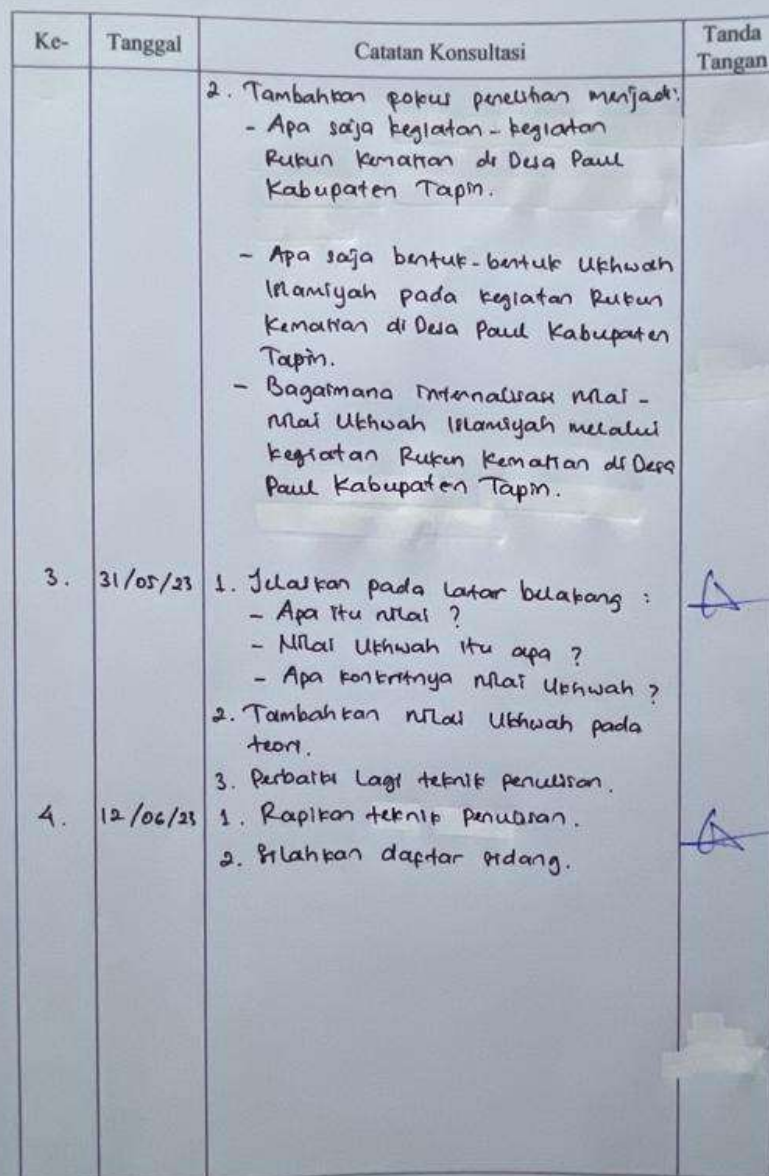 Ke- Tanggal Catatan Konsultasi Tanda Tangan
2. Tambahkan pokus penelitian menjadi:
- Apa saja kegiatan-kegiatan
Rukun Kematian di Desa Paul
Kabupaten Tapin.
- Apa saja bentuk-bentuk Ukhwah
Islamiyah pada kegiatan Rukun
Kematian di Desa Paul Kabupaten
Tapin.
- Bagaimana Internalisasi nilai-
nilai Ukhwah Islamiyah melalui
kegiatan Rukun Kematian di Desa
Paul Kabupaten Tapin.
3. 31/05/23 1. Jelaskan pada latar belakang :
- Apa itu nilai ?
- Nilai Ukhwah itu apa ?
- Apa konkritnya nilai Ukhwah ?
2. Tambahkan nilai Ukhwah pada
teori.
3. Perbaiki Lagi teknik penulisan.
4. 12/06/23 1. Rapikan teknik penulisan.
2. Silahkan daftar sidang.